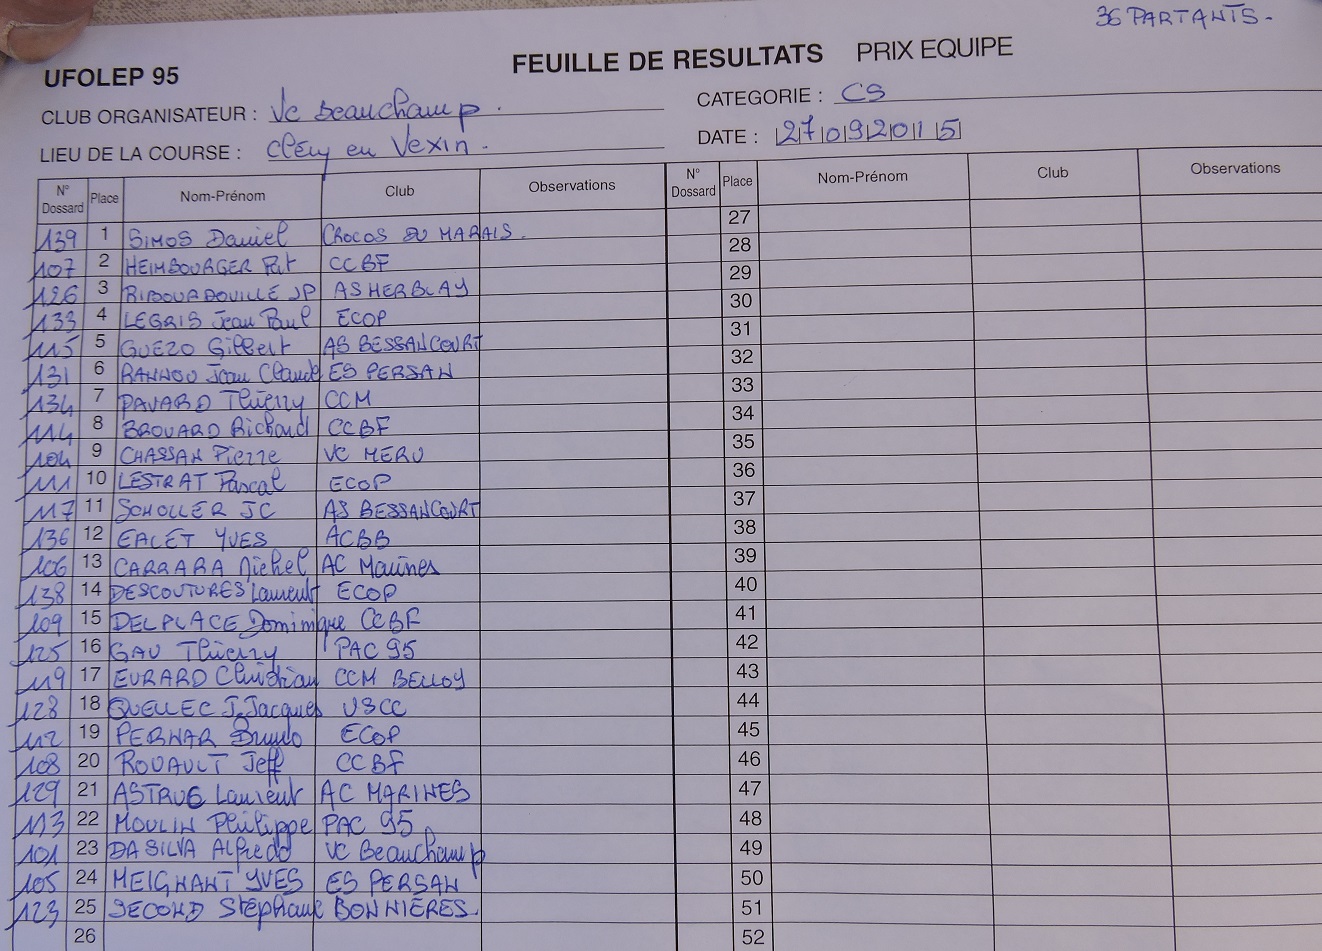 36 PARTANTS.
UFOLEP 95
FEUILLE DE RESULTATS PRIX EQUIPE
CLUB ORGANISATEUR : Vc Beauchamp.
CATEGORIE : CS
LIEU DE LA COURSE : Cléry en Vexin.
DATE : 27092015
N° Dossard Place Nom-Prénom Club Observations N° Dossard Place Nom-Prénom Club Observations
139 1 SIMOS Daniel CROCOS DU MARAIS. 27
107 2 HEIMBOURGER Pat CCBF 28
126 3 RIBOURDOUILLE JP AS HERBLAY 29
133 4 LEGRIS Jean Paul ECOP 30
115 5 GUEZO Gilbert AS BESSANCOURT 31
131 6 RANNOU Jean Claude ES PERSAN 32
134 7 PAVARD Thierry CCM 33
114 8 BROUARD Richard CCBF 34
104 9 CHASSAN Pierre VC MERU 35
111 10 LESTRAT Pascal ECOP 36
117 11 SCHOLLER JC AS BESSANCOURT 37
136 12 EALET YVES ACBB 38
106 13 CARRARA Michel AC Marines 39
138 14 DESCOUTURES Laurent ECOP 40
109 15 DELPLACE Dominique CCBF 41
125 16 GAU Thierry PAC 95 42
119 17 EVRARD Christian CCM BELLOY 43
128 18 QUELLEC J.Jacques USCC 44
112 19 PERNAR Bruno ECOP 45
108 20 ROUAULT Jeff CCBF 46
129 21 ASTRUG Laurent AC MARINES 47
113 22 MOULIN Philippe PAC 95 48
101 23 DA SILVA Alfredo VC Beauchamp 49
105 24 MEIGNANT YVES ES PERSAN 50
123 25 SECOND Stéphane BONNIÈRES. 51
26 52